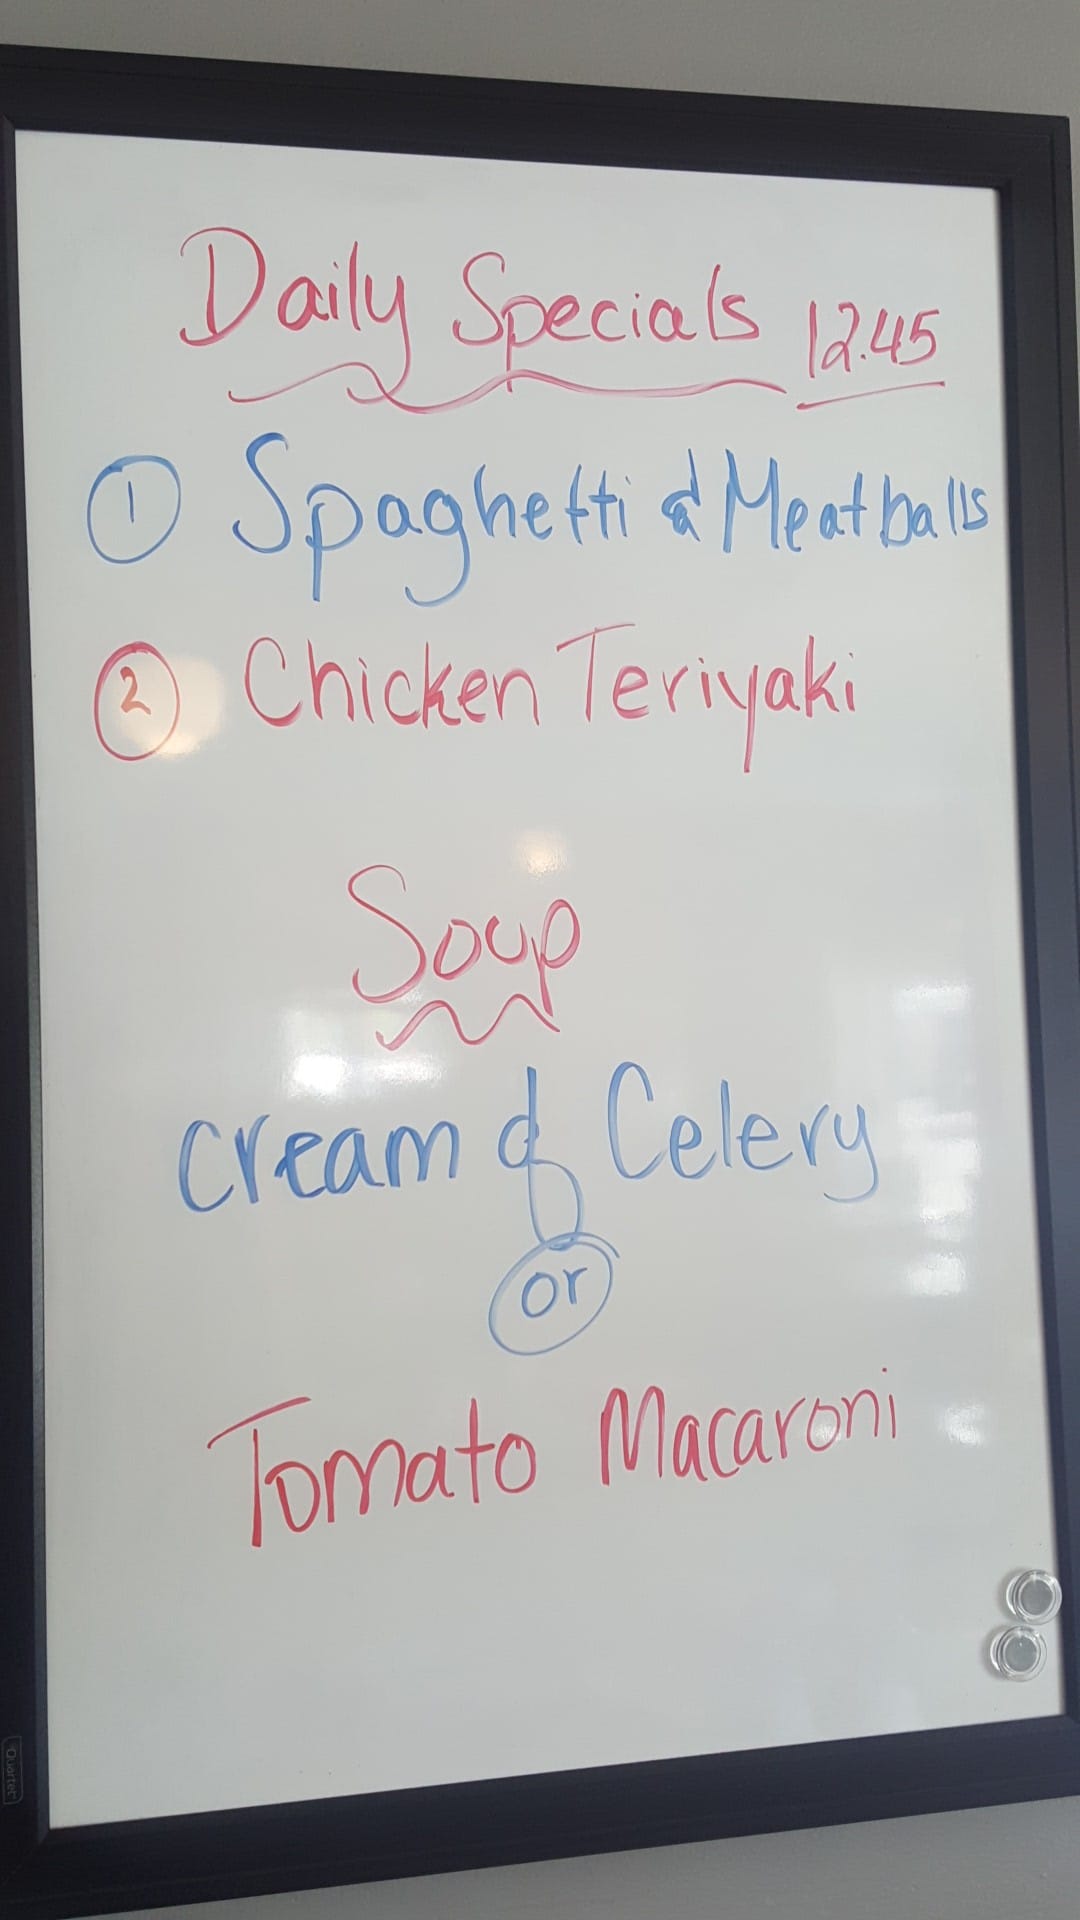 Daily Specials 12.45
1 Spaghetti & Meatballs
2 Chicken Teriyaki
Soup
Cream of Celery
or
Tomato Macaroni
Quartet